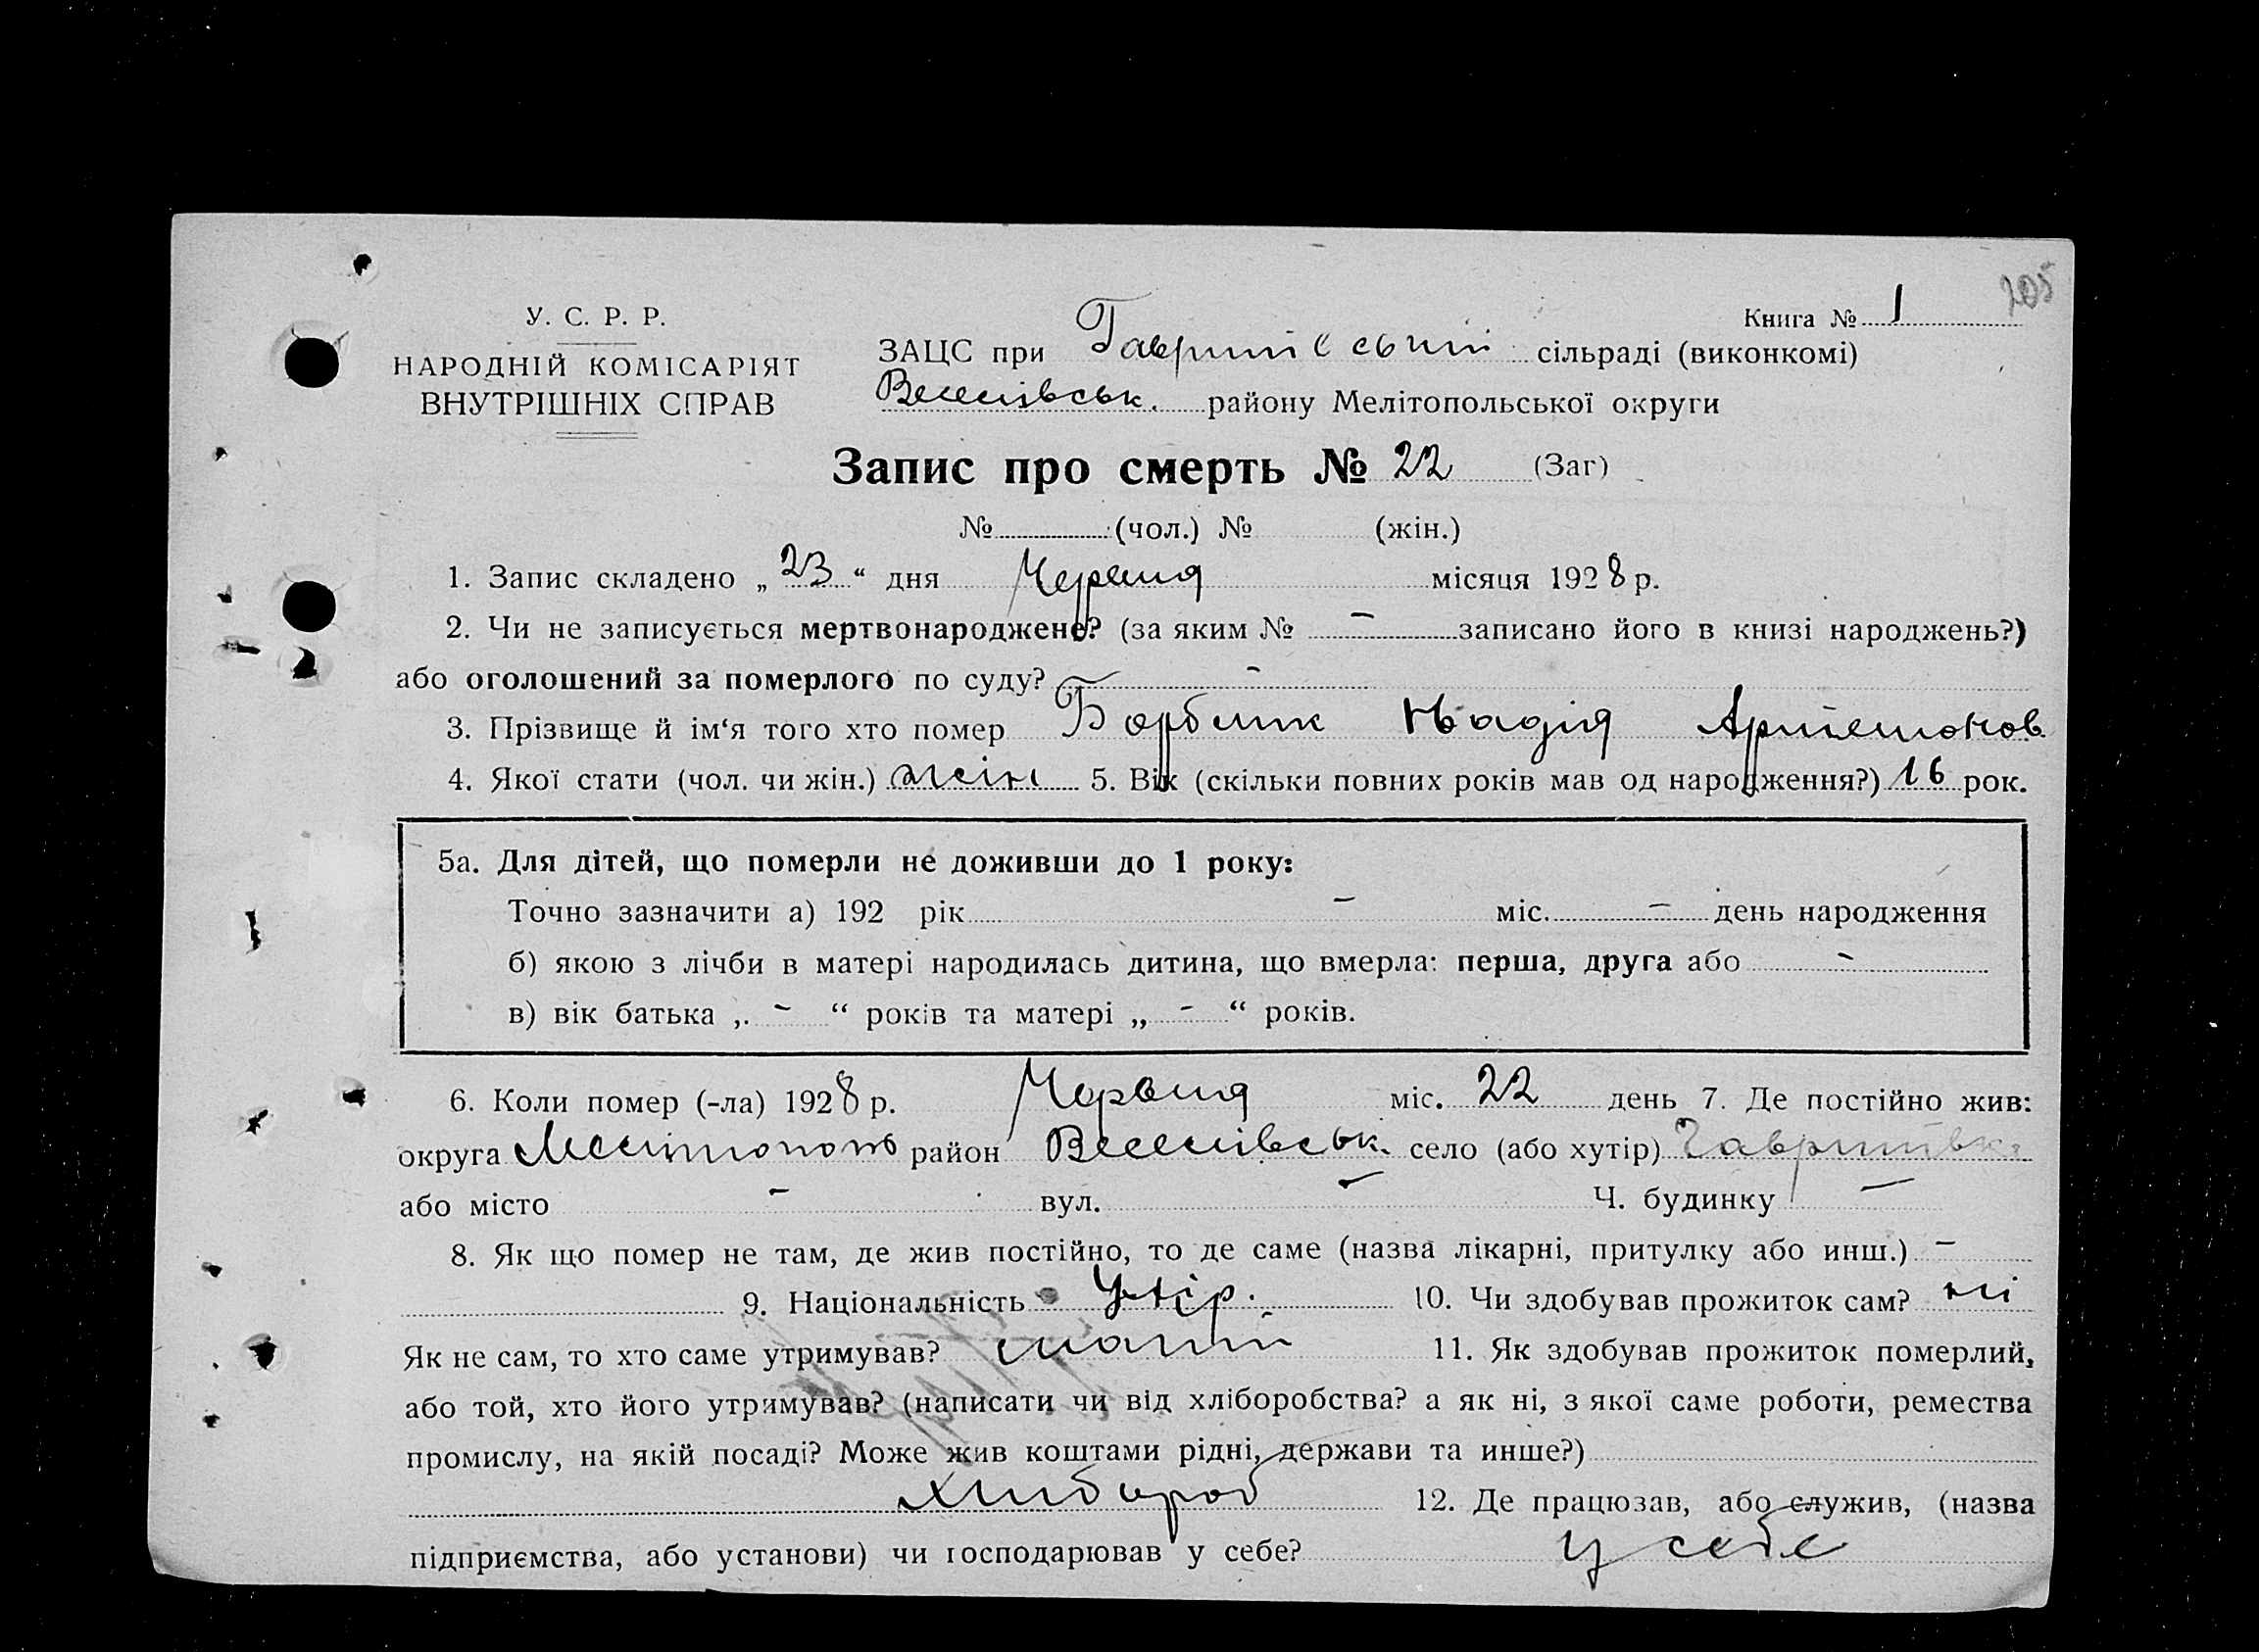 205
У. С. Р. Р.
НАРОДНІЙ КОМІСАРІЯТ
ВНУТРІШНІХ СПРАВ
Книга № 1
ЗАЦС при Гаврилівській сільраді (виконкомі)
Веселівськ. району Мелітопольської округи
Запис про смерть № 22 (Заг)
№ (чол.) № (жін.)
1. Запис складено „23“ дня Червня місяця 1928 р.
2. Чи не записується мертвонароджене? (за яким № — записано його в книзі народжень?)
або оголошений за померлого по суду? —
3. Прізвище й ім‘я того хто помер Надія Артемонов.
4. Якої стати (чол. чи жін.) жін 5. Вік (скільки повних років мав од народження?) 16 рок.
5а. Для дітей, що померли не доживши до 1 року:
Точно зазначити а) 192 рік — міс. — день народження
б) якою з лічби в матері народилась дитина, що вмерла: перша, друга або —
в) вік батька „ — “ років та матері „ — “ років.
6. Коли помер (-ла) 1928 р. Червня міс. 22 день 7. Де постійно жив:
округа Мелітополь район Веселівськ. село (або хутір) Гаврилівка
або місто — вул. — Ч. будинку —
8. Як що помер не там, де жив постійно, то де саме (назва лікарні, притулку або инш.) —
9. Національність Укір. 10. Чи здобував прожиток сам? ні
Як не сам, то хто саме утримував? 11. Як здобував прожиток померлий,
або той, хто його утримував? (написати чи від хліборобства? а як ні, з якої саме роботи, ремества
промислу, на якій посаді? Може жив коштами рідні, держави та инше?)
хлибороб 12. Де працюзав, або служив, (назва
підприємства, або установи) чи господарював у себе? у себе